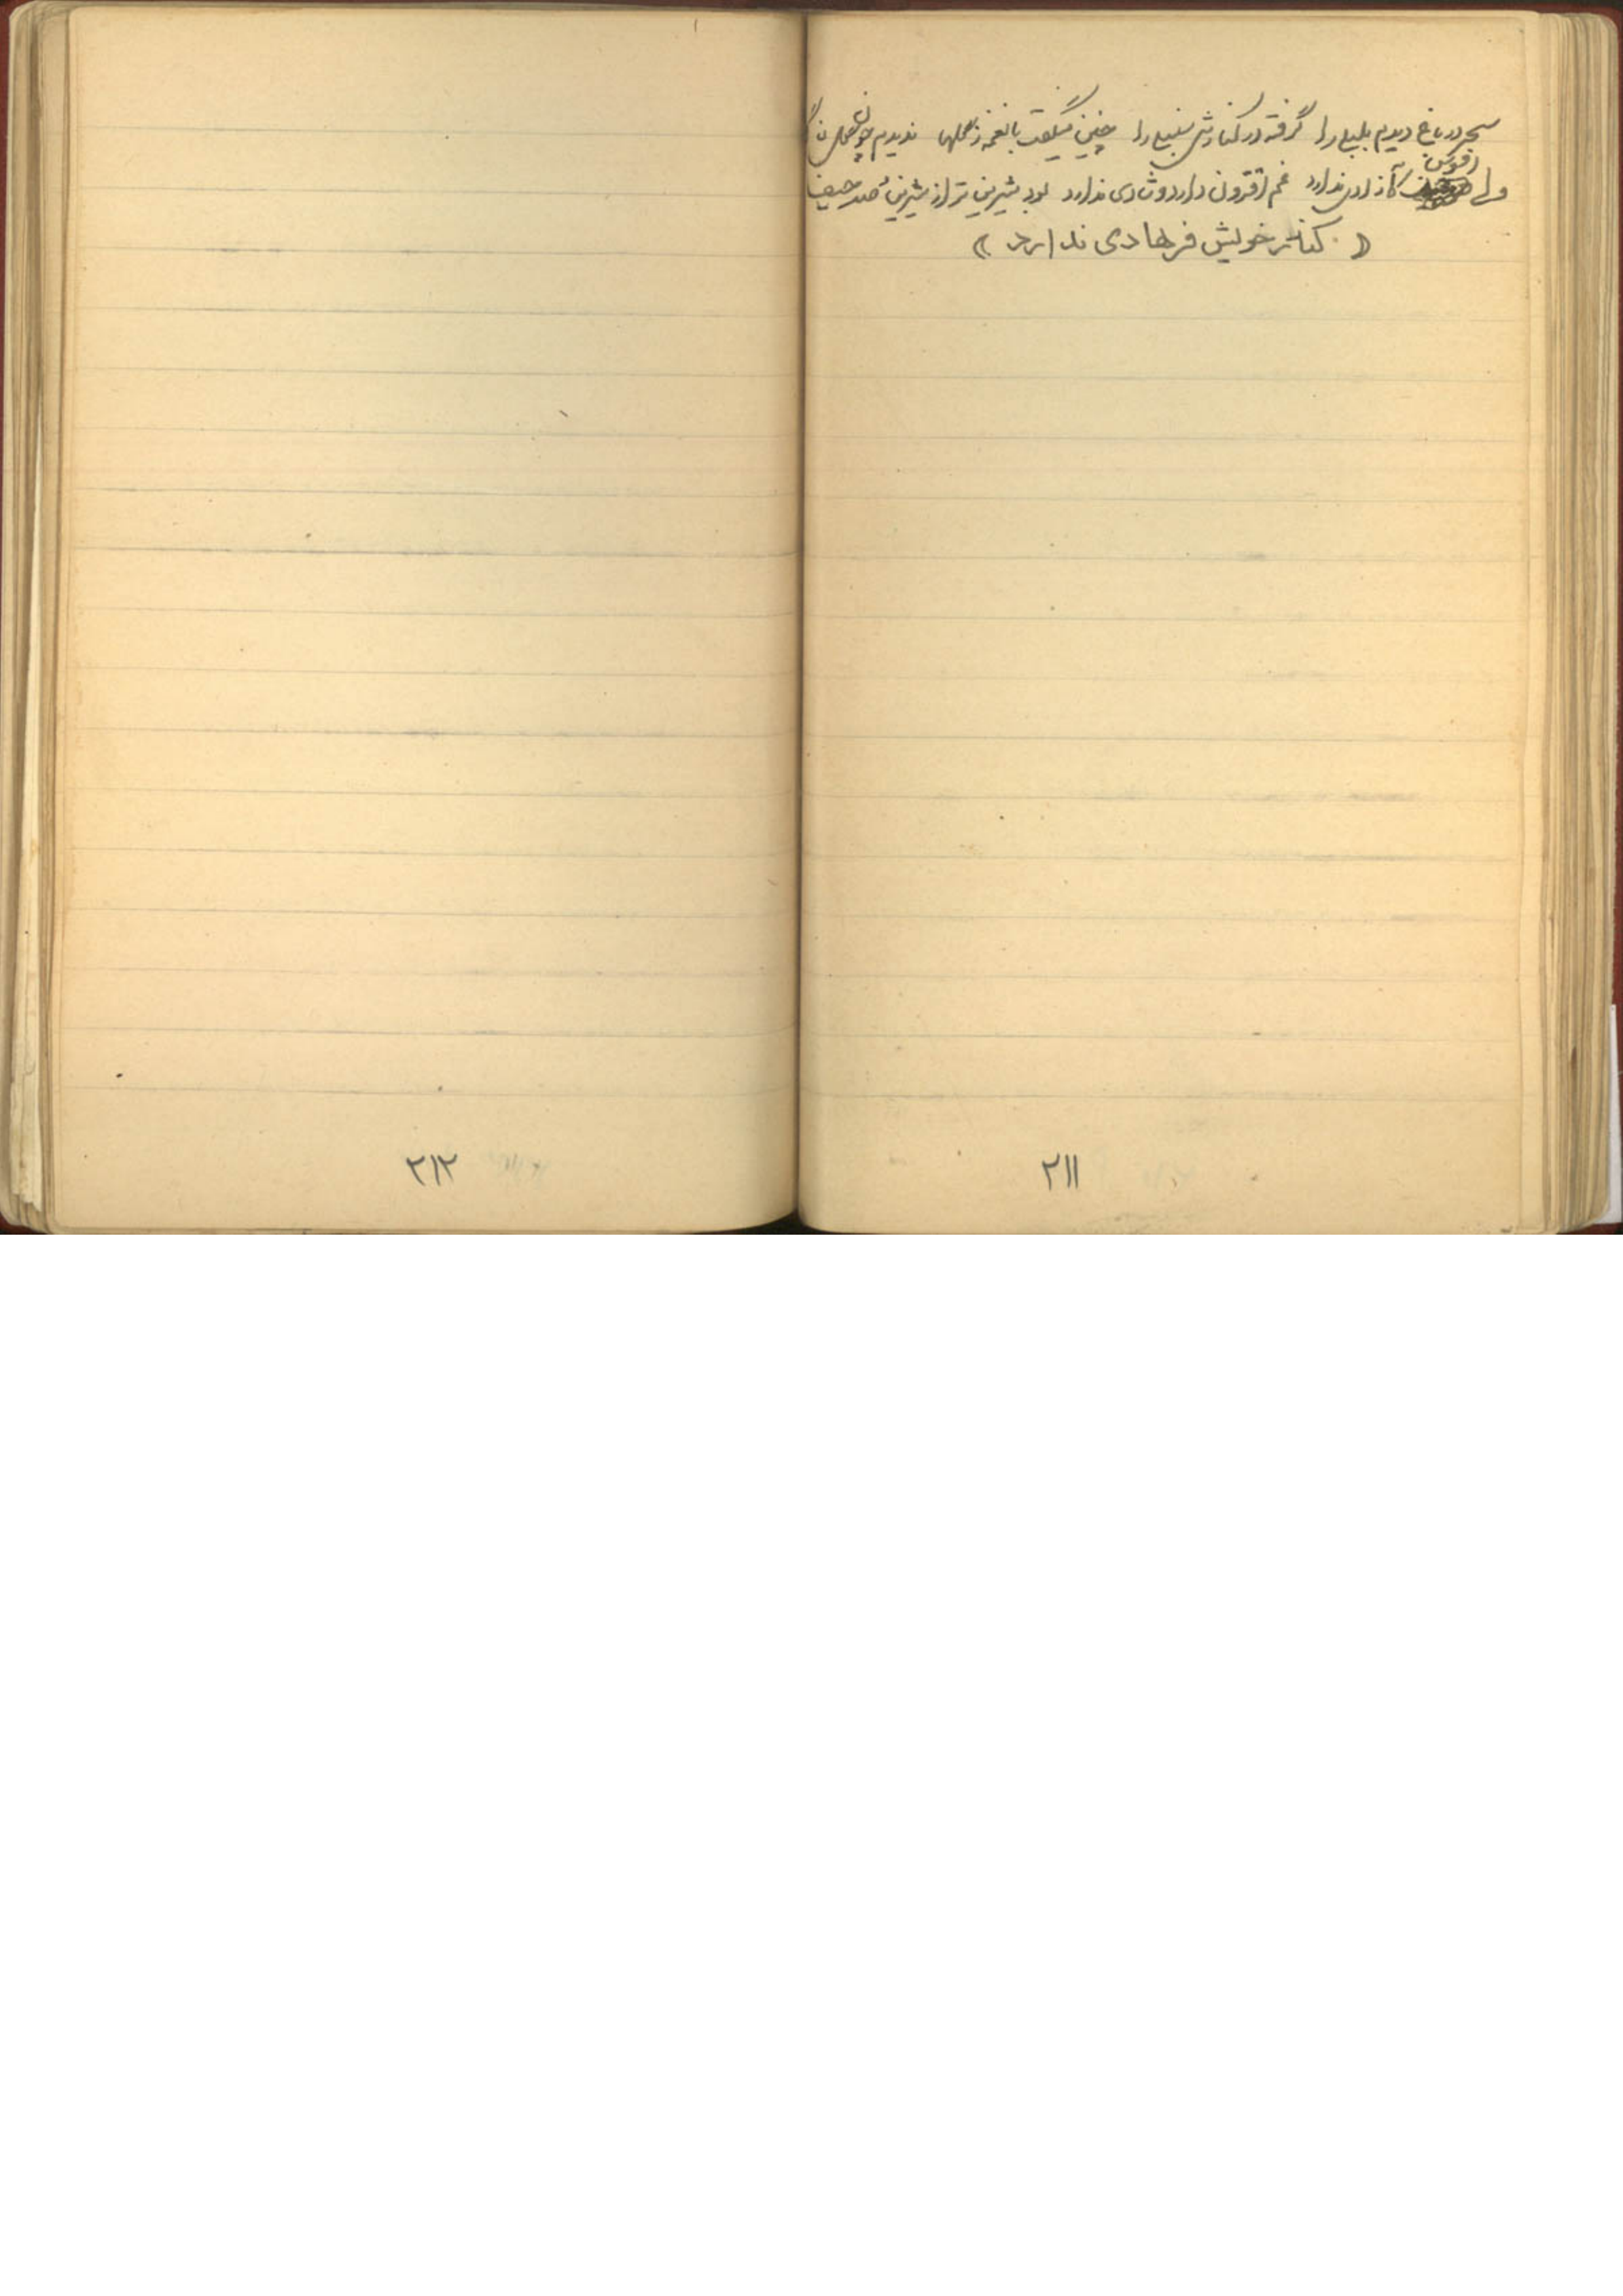 سحر در باغ دیدم بلبلی را گرفته در کنارش سنبلی را چنین میگفت با نغمه ز گلها ندیدم چون
افسوس
ولی کآزادی ندارد غم افزون دارد و شادی ندارد بود شیرین تر از شیرین صد حیف
( کنار خویش فرهادی ندارد )
۲۱۱
۲۱۲